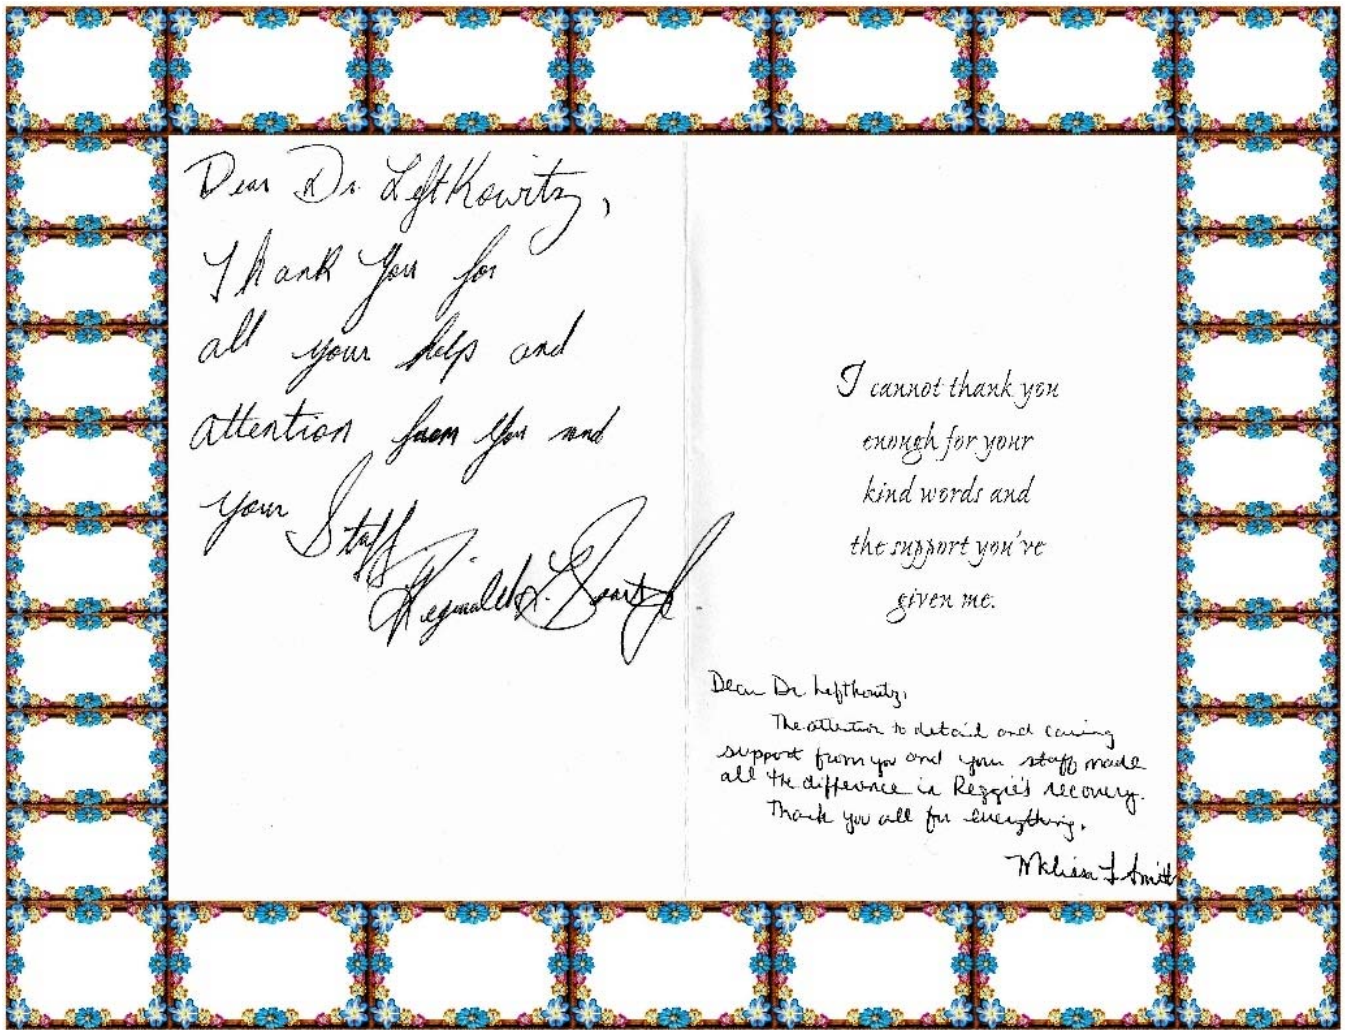 Dear Dr. Leftkowitz,
Thank you for
all your help and
attention from you and
your Staff
Reginald L.
I cannot thank you
enough for your
kind words and
the support you've
given me.
Dear Dr. Leftkowitz,
The attention to detail and caring
support from you and your staff made
all the difference in Reggie's recovery.
Thank you all for everything.
Melissa L Smith